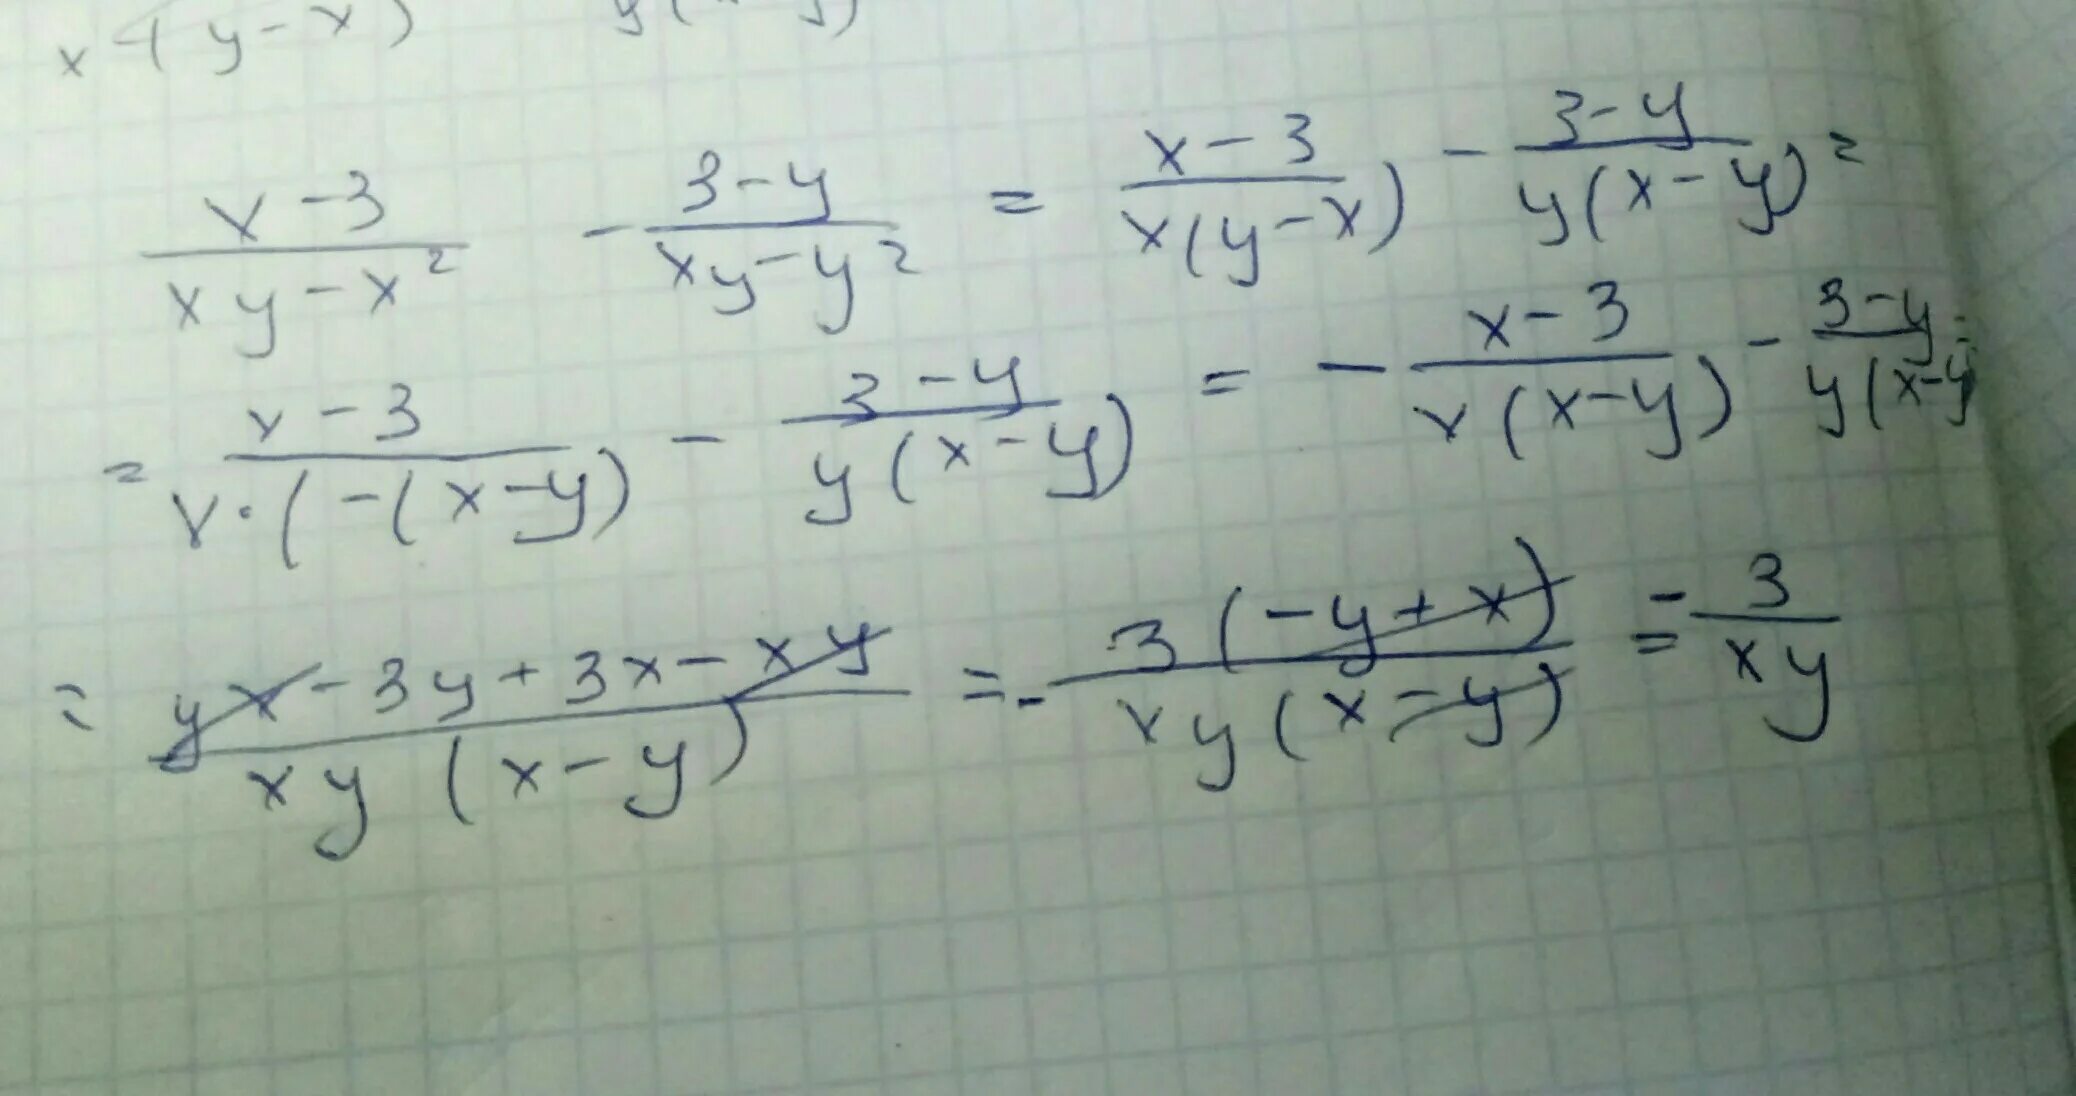 x - (y - x) y(x - y)
(x - 3)/(xy - x²) - (3 - y)/(xy - y²) = (x - 3)/(x(y - x)) - (3 - y)/(y(x - y)) =
= (x - 3)/(x·(-(x - y)) - (3 - y)/(y(x - y)) = - (x - 3)/(x(x - y)) - (3 - y)/(y(x - y
= (yx - 3y + 3x - xy)/(xy(x - y)) = - (3(-y + x))/(xy(x - y)) = - 3/(xy)